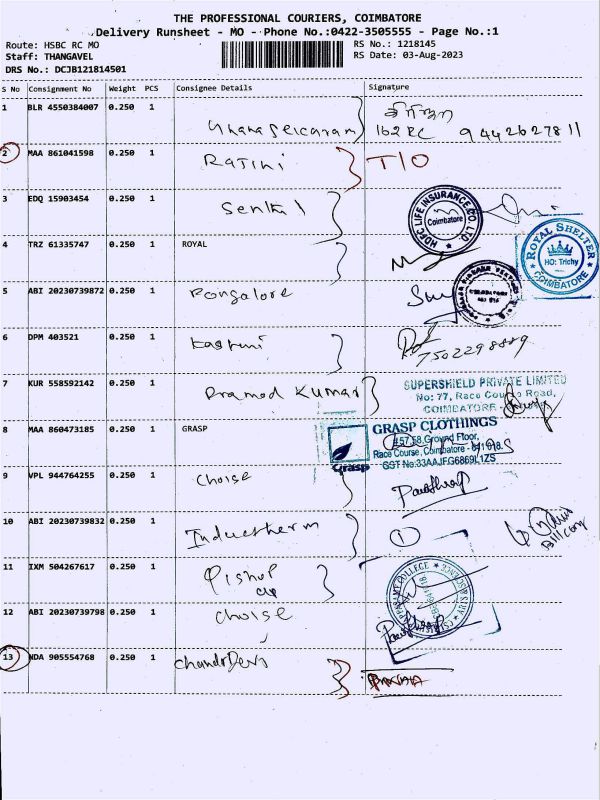 THE PROFESSIONAL COURIERS, COIMBATORE
Delivery Runsheet - MO - Phone No.:0422-3505555 - Page No.:1
Route: HSBC RC MO
RS No.: 1218145
Staff: THANGAVEL
RS Date: 03-Aug-2023
DRS No.: DCJB121814501
S No Consignment No Weight PCS Consignee Details Signature
1 BLR 4550384007 0.250 1
162 RC 9442627811
2 MAA 861041598 0.250 1 Rajini T/O
3 EDQ 15903454 0.250 1 Senthil
HDFC LIFE INSURANCE CO. LTD.
Coimbatore
4 TRZ 61335747 0.250 1 ROYAL
ROYAL SHELTER
HO: Trichy
COIMBATORE
5 ABI 20230739872 0.250 1 Rongalore
6 DPM 403521 0.250 1
7502298889
7 KUR 558592142 0.250 1 Pramod Kumar
SUPERSHIELD PRIVATE LIMITED
No: 77, Race Course Road,
COIMBATORE
8 MAA 860473185 0.250 1 GRASP
Grasp
GRASP CLOTHINGS
#57,58, Ground Floor,
Race Course, Coimbatore - 641 018.
GST No:33AAJFG6869L1ZS
9 VPL 944764255 0.250 1 Choise
10 ABI 20230739832 0.250 1 Inductherm 1
11 IXM 504267617 0.250 1 Bishop
12 ABI 20230739798 0.250 1 Choise
13 NDA 905554768 0.250 1 Chandr Devi